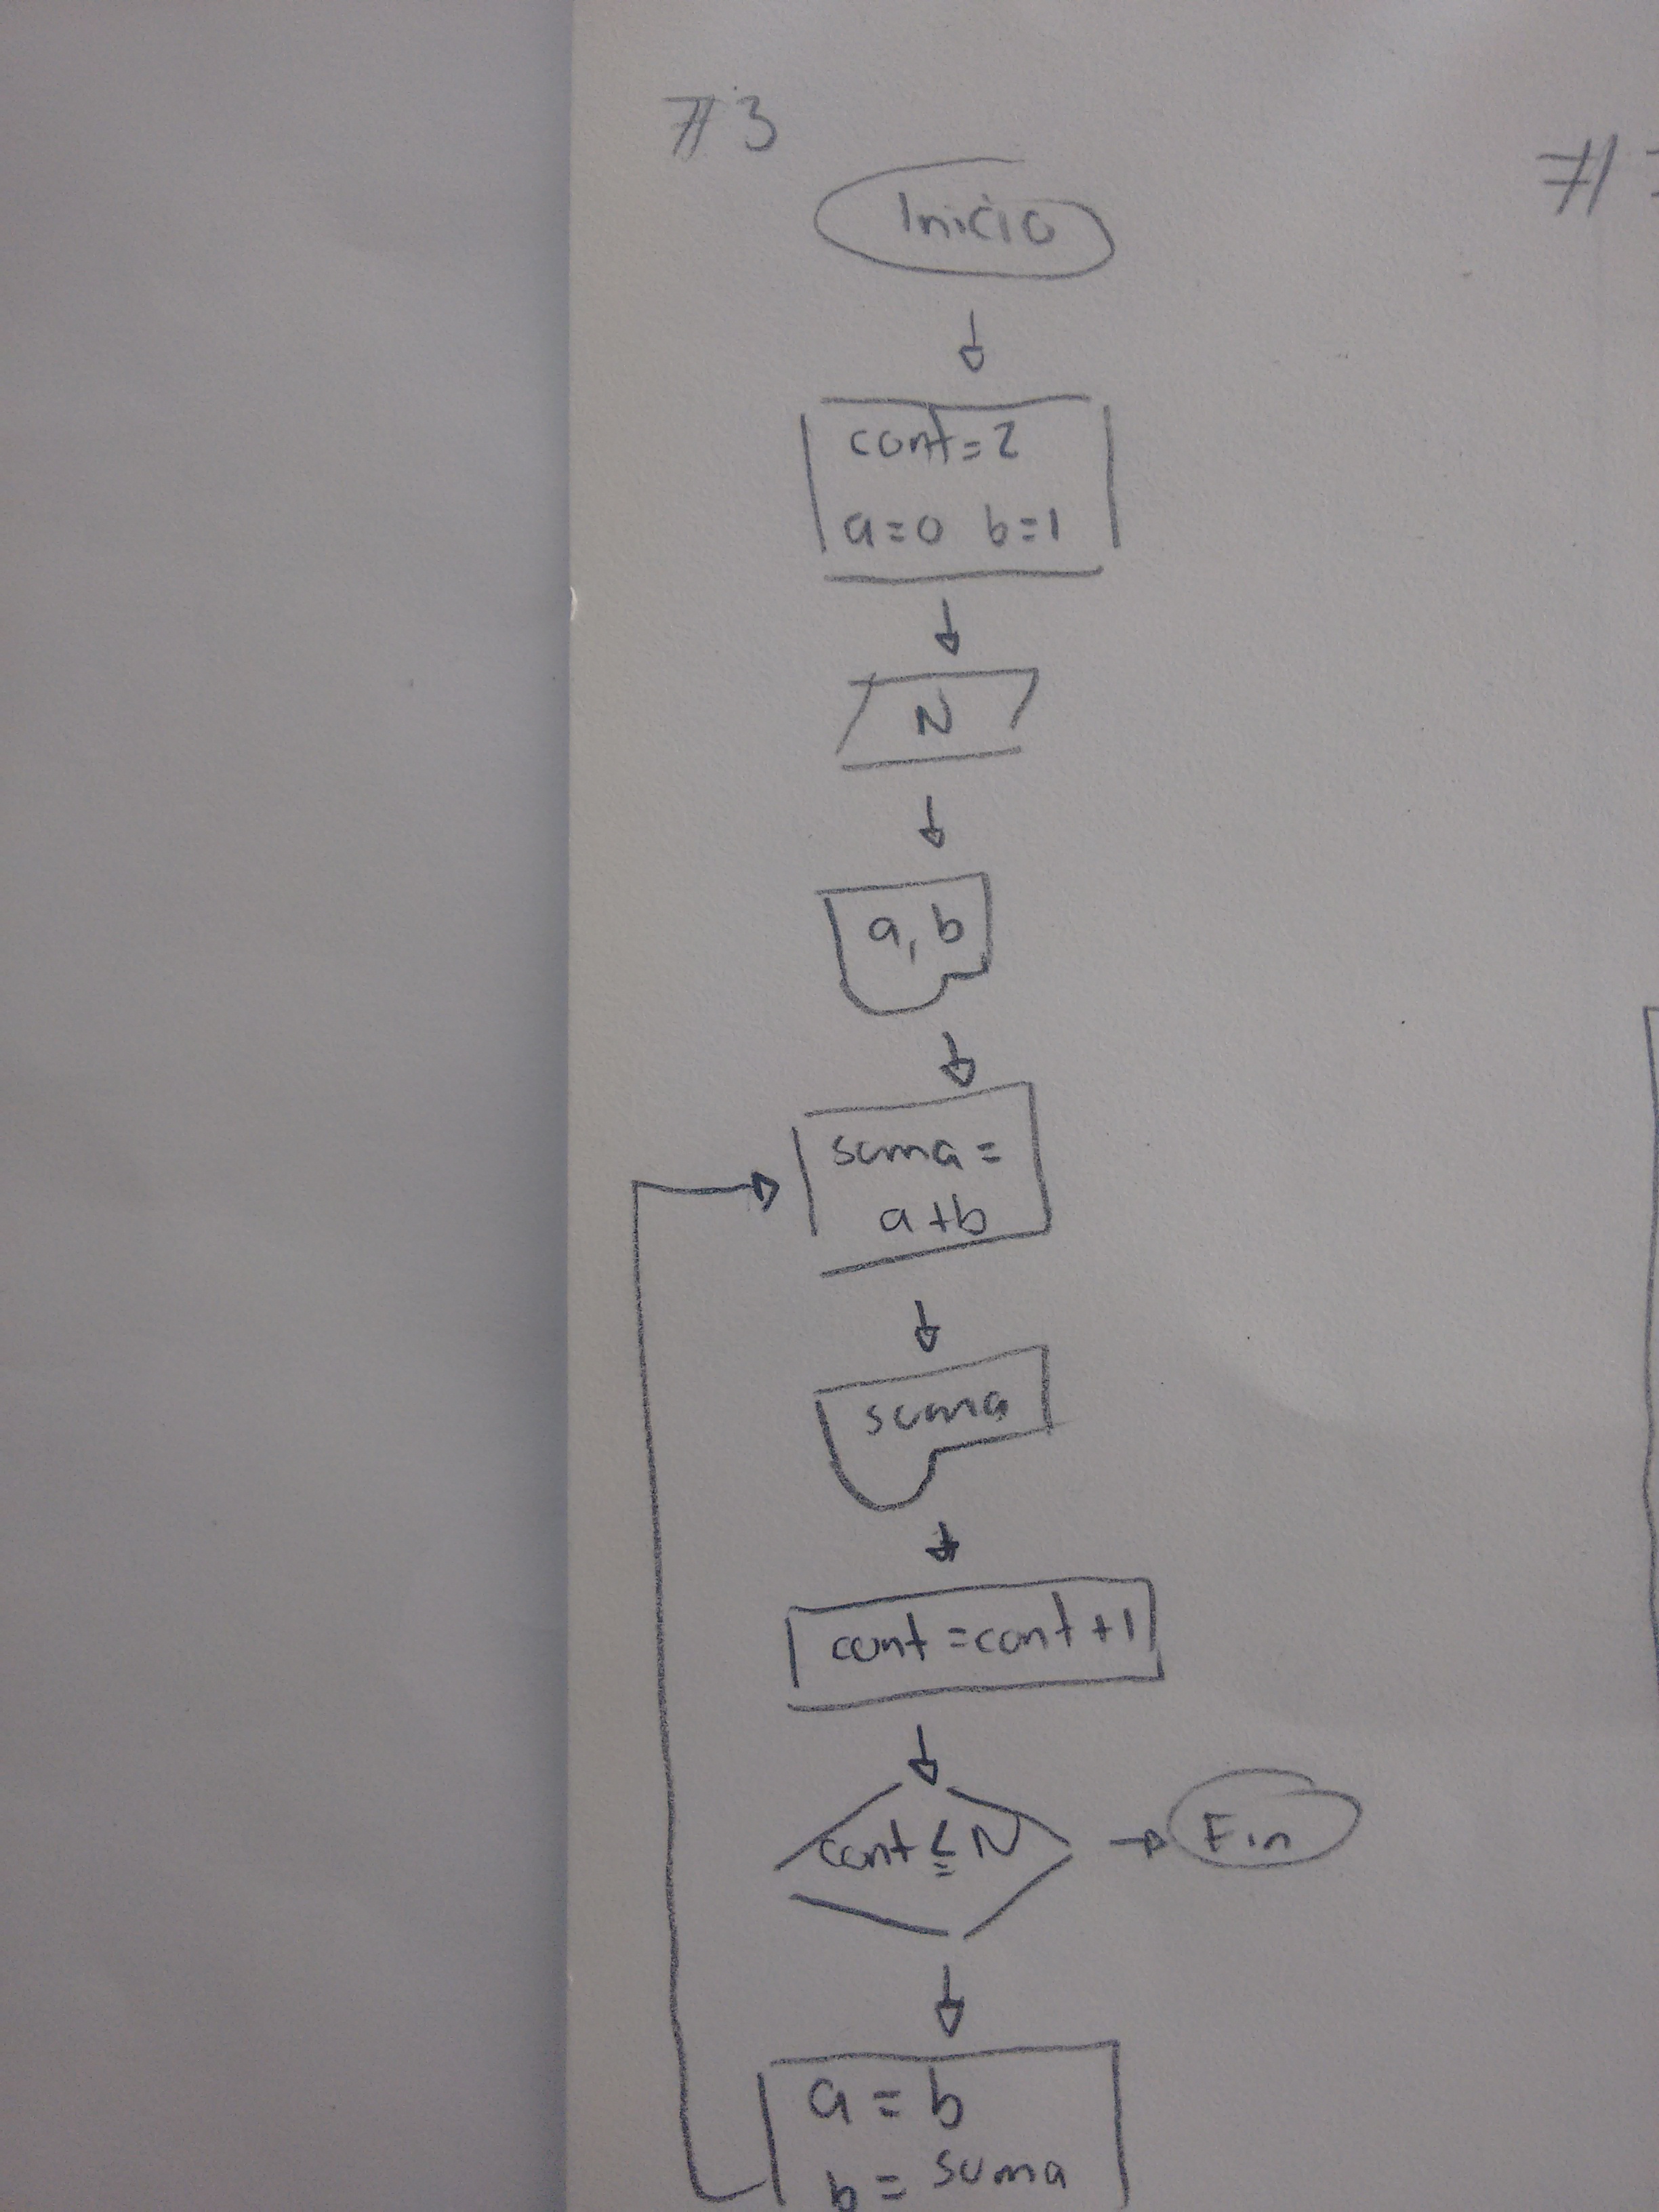 #3
#
Inicio
cont=2
a=0 b=1
N
a, b
suma=
a+b
suma
cont=cont+1
cont≤N
Fin
a=b
b=suma